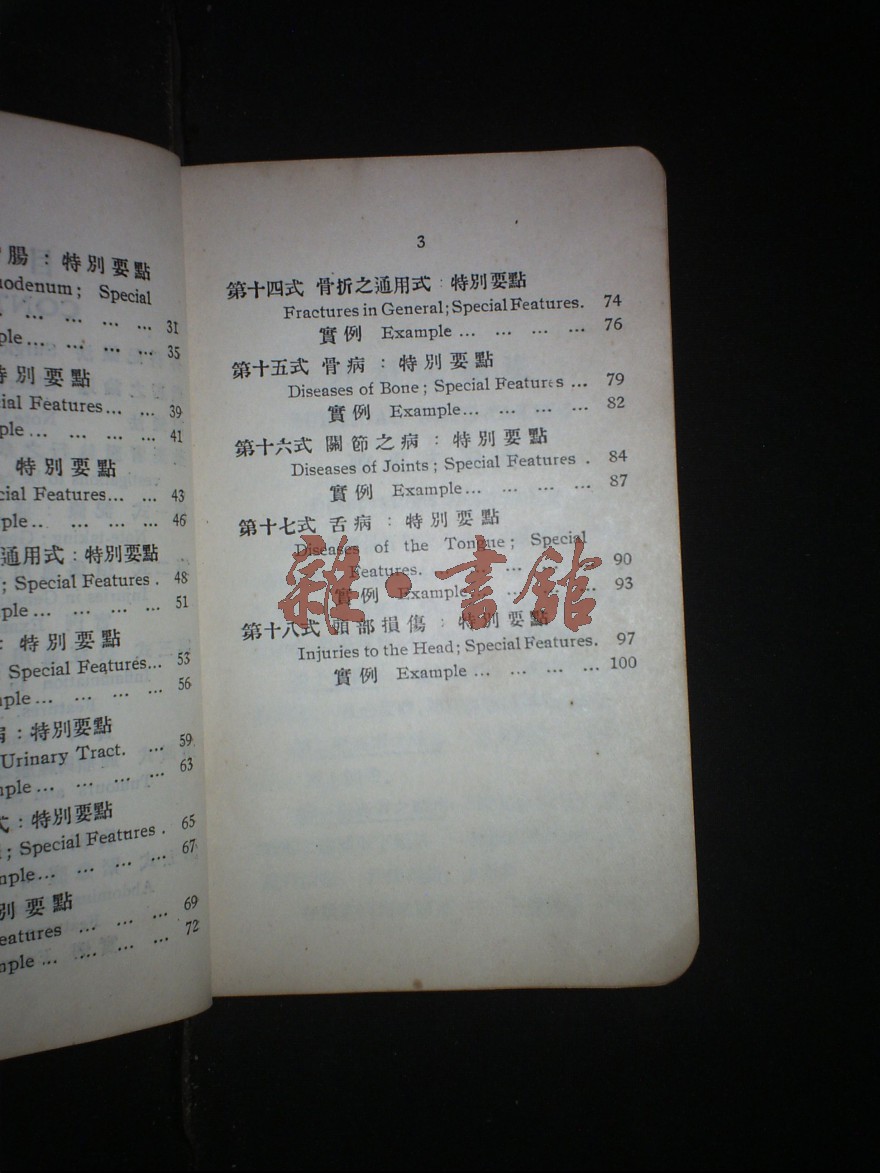 腸：特別要點
uodenum; Special
... ... ... ... ... 31
ple... ... ... ... ... 35
特別要點
ial Features... ... 39
ple ... ... ... ... 41
特別要點
cial Features... ... 43
ple... ... ... ... 46
通用式：特別要點
; Special Features . 48
mple ... ... ... ... 51
: 特別要點
Special Features... 53
mple ... ... ... ... 56
：特別要點
Urinary Tract. ... 59
mple ... ... ... ... 63
式：特別要點
; Special Features . 65
mple... ... ... ... 67
別要點
eatures ... ... ... 69
mple ... ... ... ... 72
3
第十四式 骨折之通用式：特別要點
Fractures in General; Special Features. 74
實例 Example ... ... ... ... 76
第十五式 骨病：特別要點
Diseases of Bone; Special Features ... 79
實例 Example... ... ... ... 82
第十六式 關節之病：特別要點
Diseases of Joints; Special Features . 84
實例 Example... ... ... ... 87
第十七式 舌病：特別要點
Diseases of the Tongue; Special
Features. ... ... ... 90
實例 Example... ... ... ... 93
第十八式 頭部損傷：特別要點
Injuries to the Head; Special Features. 97
實例 Example ... ... ... ... 100
雜·書館